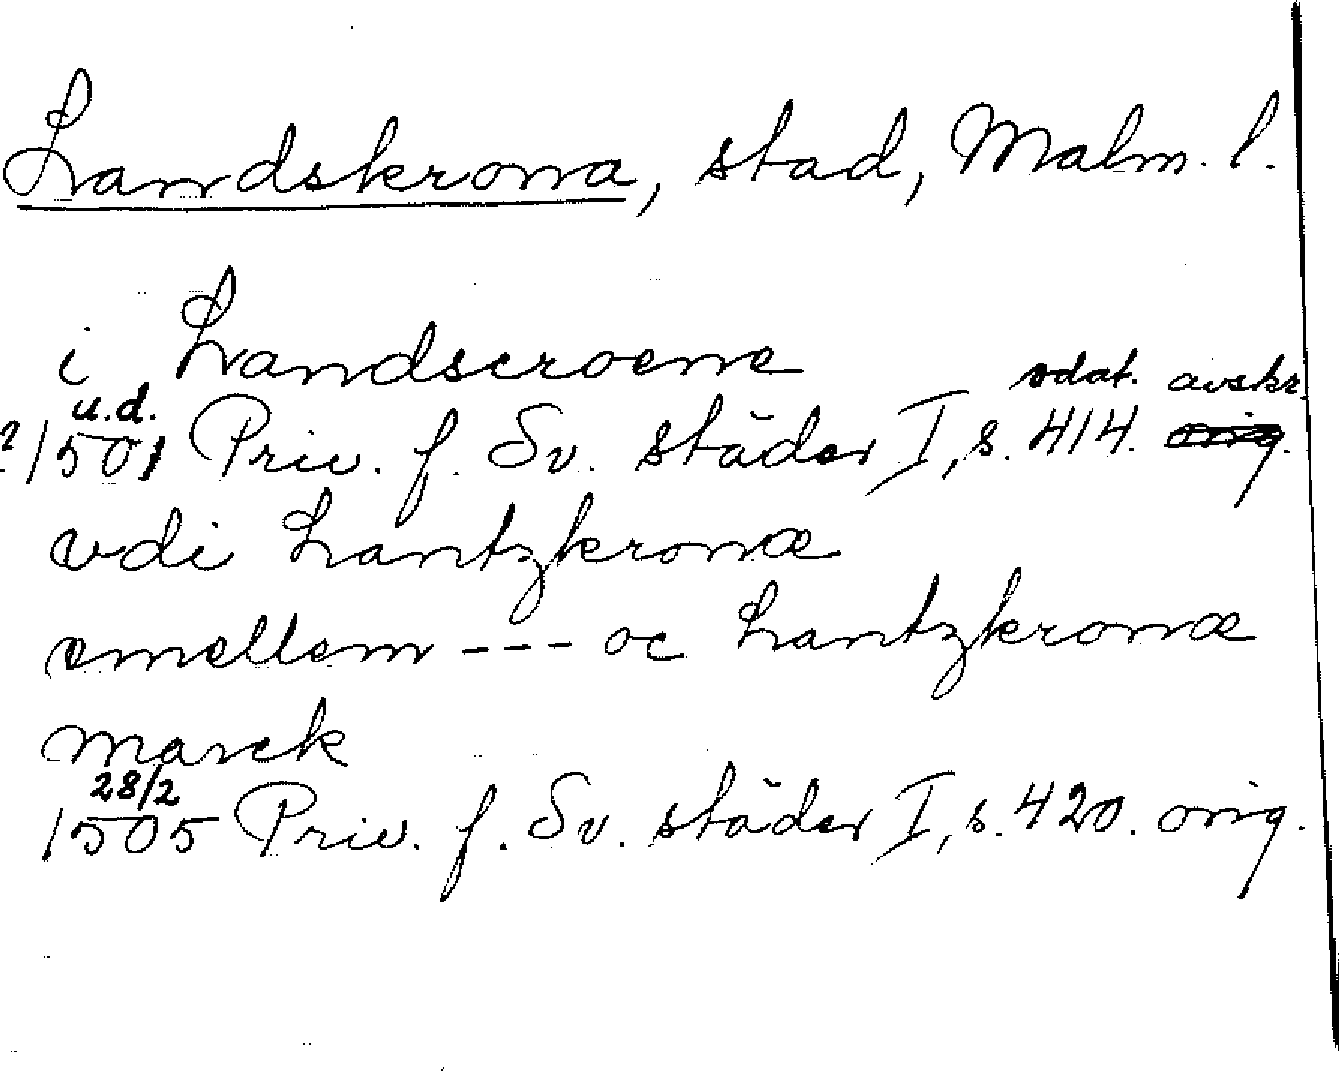 Landskrona, stad, Malm. l.
i Landscrone
odat. avskr.
u.d.
?1501 Priv. f. Sv. städer I, s. 414. orig.
vdi Lantzkronæ
emellem --- oc Lantzkronæ
marck
28/2
1505 Priv. f. Sv. städer I, s. 420. orig.